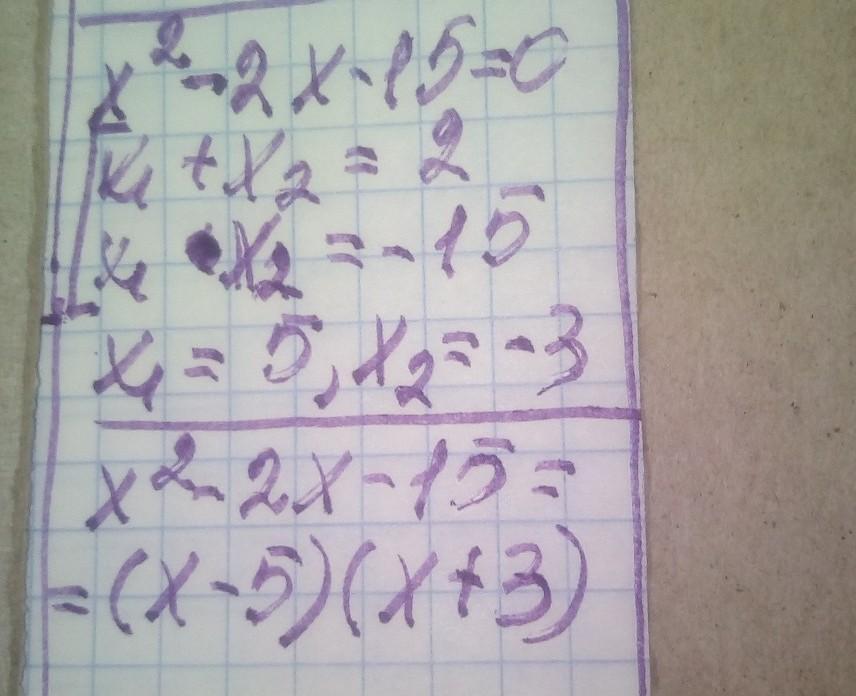 x² - 2x - 15 = 0
x₁ + x₂ = 2
x₁ • x₂ = -15
x₁ = 5, x₂ = -3
x² - 2x - 15 =
= (x - 5)(x + 3)